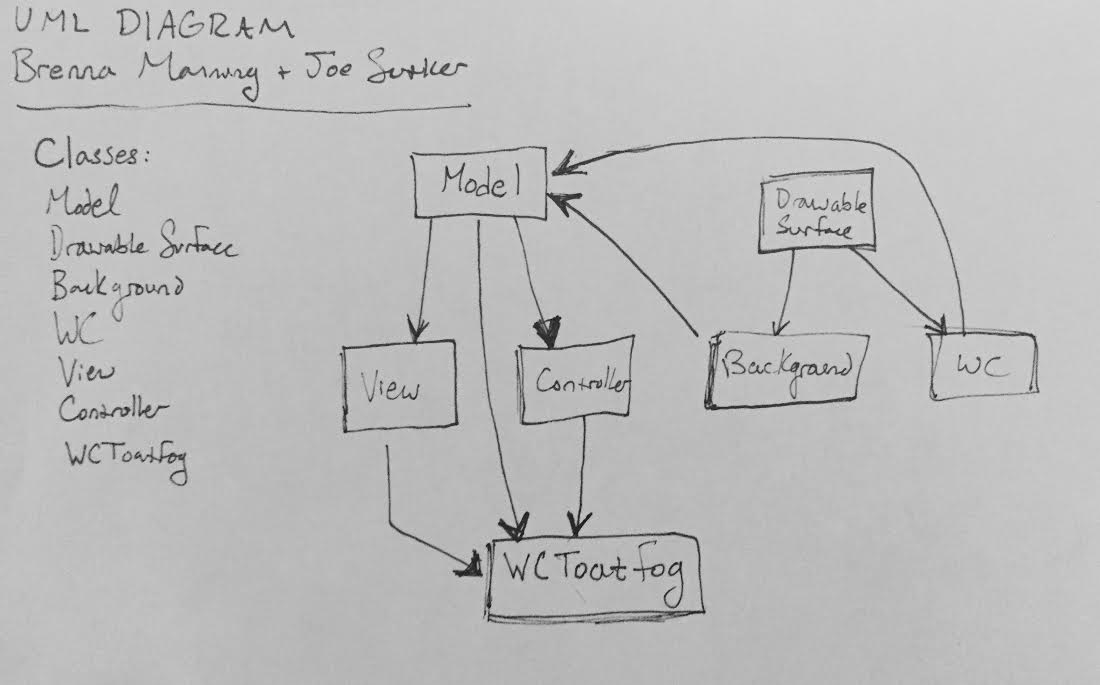 UML DIAGRAM
Brenna Manning + Joe Sutker
Classes:
Model
Drawable Surface
Background
WC
View
Controller
WCToatfog
Model
Drawable
Surface
View
Controller
Background
WC
WCToatfog